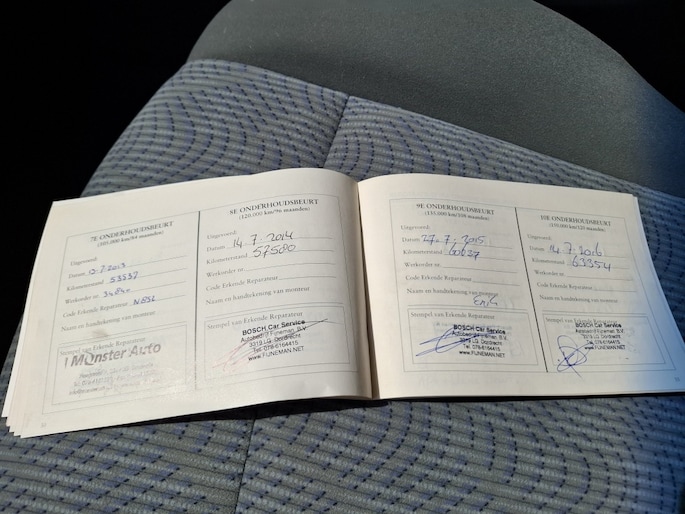 7E ONDERHOUDSBEURT
(105.000 km/84 maanden)
Uitgevoerd:
Datum
Kilometerstand 53337
Werkorder nr.
Code Erkende Reparateur
Naam en handtekening van monteur
Stempel van Erkende Reparateur
Münster Auto
8E ONDERHOUDSBEURT
(120.000 km/96 maanden)
Uitgevoerd:
Datum 14.7.2014
Kilometerstand 57580
Werkorder nr.
Code Erkende Reparateur
Naam en handtekening van monteur
Stempel van Erkende Reparateur
BOSCH Car Service
Autobedrijf Funeman B.V.
3319 LG Dordrecht
Tel. 078-6164415
www.FUNEMAN.NET
9E ONDERHOUDSBEURT
(135.000 km/108 maanden)
Uitgevoerd:
Datum 27.7.2015
Kilometerstand 60637
Werkorder nr.
Code Erkende Reparateur
Naam en handtekening van monteur
Stempel van Erkende Reparateur
BOSCH Car Service
Autobedrijf Funeman B.V.
3319 LG Dordrecht
Tel. 078-6164415
www.FUNEMAN.NET
10E ONDERHOUDSBEURT
(150.000 km/120 maanden)
Uitgevoerd:
Datum 14.7.2016
Kilometerstand 63354
Werkorder nr.
Code Erkende Reparateur
Naam en handtekening van monteur
Stempel van Erkende Reparateur
BOSCH Car Service
Autobedrijf Funeman B.V.
3319 LG Dordrecht
Tel. 078-6164415
www.FUNEMAN.NET